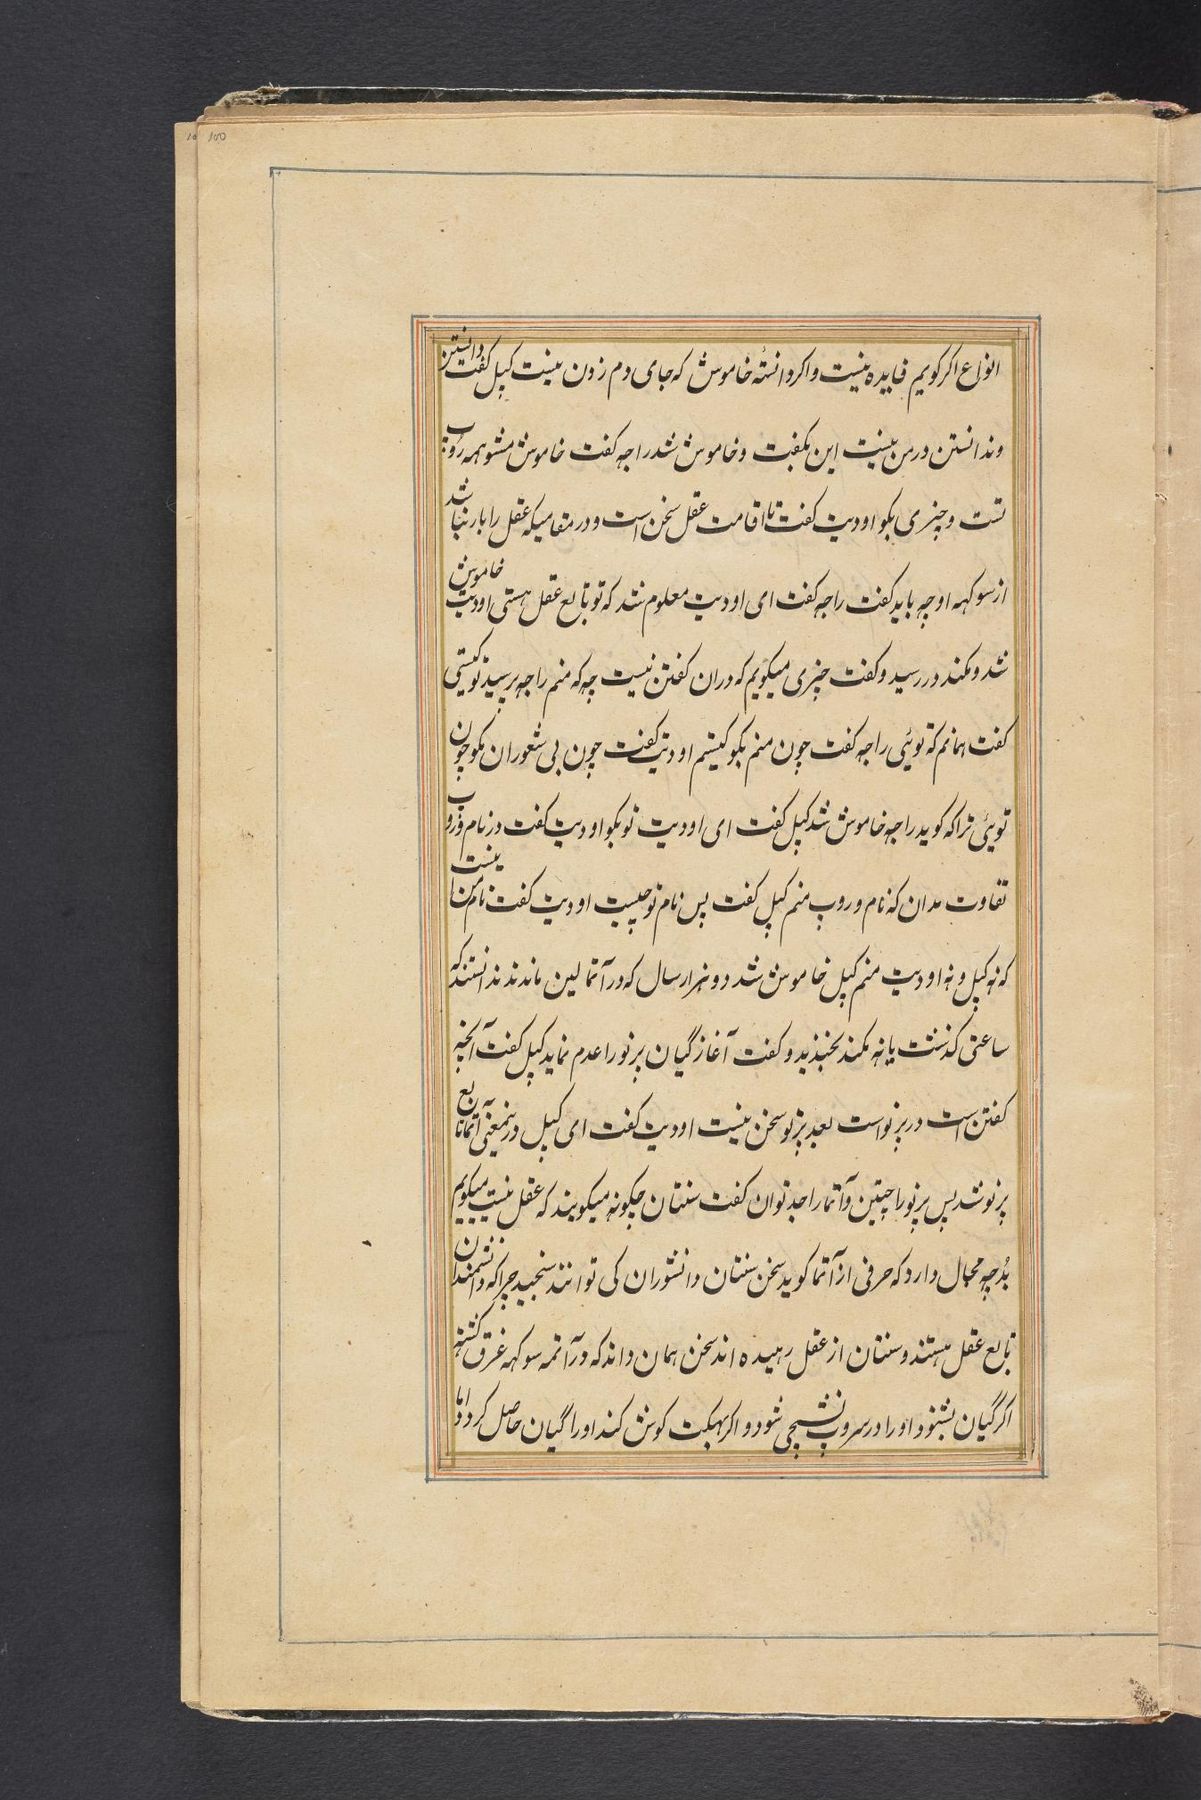 100
انواع اکر کویم فایده نیست و اکر دانسته خاموش که جای دم زدن نیست کپل کفت دانستن
و ندانستن در من نیست این بکفت و خاموش شد راجه کفت خاموش مشو همه روپ
تست و چیزی بکو اودیت کفت تا اقامت عقل سخن است و در مقامیکه عقل را بار نباشد
از سوکهه او چه باید کفت راجه کفت ای اودیت معلوم شد که تو تابع عقل هستی اودیت خاموش
شد و مکند در رسید و کفت چیزی میکویم که دران کفتن نیست چه که منم راجه پرسید تو کیستی
کفت همانم که توئی راجه کفت چون منم بکو کیستم اودیت کفت چون بی شعوران مکو چون
توئی ترا که کوید راجه خاموش شد کپل کفت ای اودیت تو بکو اودیت کفت در نام و روپ
تفاوت مدان که نام و روپ منم کپل کفت پس نام تو چیست اودیت کفت نام من نیست
که نه کپل و نه اودیت منم کپل خاموش شد دو هزار سال که در آتما لین ماندند ندانستند که
ساعتی کذشت یا نه مکند بخندید و کفت آغاز گیان پرنو را عدم نماید کپل کفت آنچه
کفتن است در پرنو است بعد پرنو سخن نیست اودیت کفت ای کپل درینمعنی آتما تابع
پرنو شد پس پرنو را چیتن و آتما را جد توان کفت سنتان چکونه میکویند که عقل نیست میکویم
بده چه مجال دارد که حرفی از آتما کوید سخن سنتان دانشوران کی توانند سنجید چرا که دانشمندان
تابع عقل هستند و سنتان از عقل رهیده اند سخن همان داند که در آتمه سوکهه غرق کشته
اکر گیان بشنود او را در سروپ نشچی شود و اکر بهکت کوش کند او را گیان حاصل کردد اما